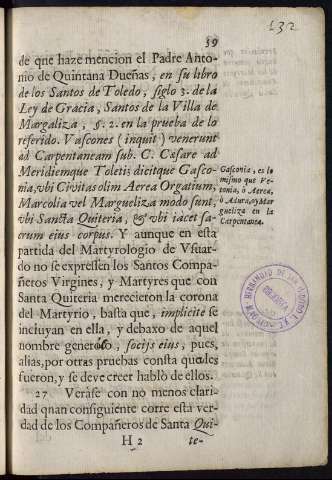 132
59
de que haze mencion el Padre Anto-
nio de Quintana Dueñas, en su libro
de los Santos de Toledo, siglo 3. de la
Ley de Gracia, Santos de la Villa de
Margaliza, §. 2. en la prueba de lo
referido. Vascones (inquit) venerunt
ad Carpentaneam sub. C. Cæsare ad
Meridiemque Toletis dicitque Gasco-
nia, vbi Civitas olim Aerea Orgatium,
Marcolia vel Margueliza modo sunt,
vbi Sancta Quiteria, & vbi iacet sa-
crum eius corpus. Y aunque en esta
partida del Martyrologio de Vsuar-
do no se expressen los Santos Compa-
ñeros Virgines, y Martyres que con
Santa Quiteria merecieron la corona
del Martyrio, basta que, implicite se
incluyan en ella, y debaxo de aquel
nombre generoso, socijs eius, pues,
alias, por otras pruebas consta quales
fueron, y se deve creer hablò de ellos.
27 Veràse con no menos clari-
dad quan consiguiente corre esta ver-
dad de los Compañeros de Santa Qui-
H 2 te-
Gasconia, es lo
mismo que Ve-
tonia, ò Aerea,
ò Aiura, y Mar
gueliza en la
Carpentanea.